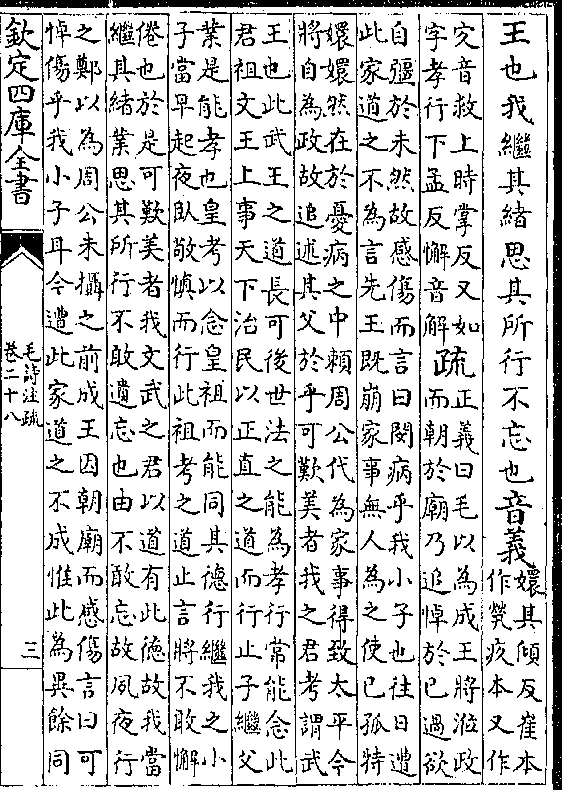 王也我繼其緒思其所行不忘也音義
嬛其傾反崔本
作煢疚本又作
㝌音救上時掌反又如
字孝行下孟反懈音解
疏
正義曰毛以為成王將涖政
而朝於廟乃追悼於已過欲
自彊於未然故感傷而言曰閔病乎我小子也往日遭
此家道之不為言先王既崩家事無人為之使已孤特
嬛嬛然在於憂病之中賴周公代為家事得致太平今
將自為政故追述其父於乎可歎美者我之君考謂武
王也此武王之道長可後世法之能為孝行常能念此
君祖文王上事天下治民以正直之道而行止子繼父
業是能孝也皇考以念皇祖而能同其德行繼我之小
子當早起夜臥敬慎而行此祖考之道止言將不敢懈
倦也於是可歎美者我文武之君以道有此德故我當
繼其緒業思其所行不敢遺忘也由不敢忘故夙夜行
之鄭以為周公未攝之前成王因朝廟而感傷言曰可
悼傷乎我小子耳今遭此家道之不成惟此為異餘同
欽定四庫全書
毛詩注疏
卷二十八
三